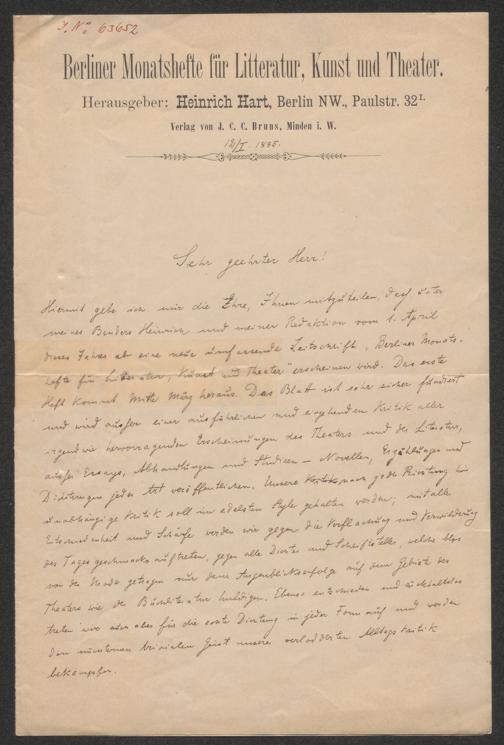 J. N° 63652
Berliner Monatshefte für Litteratur, Kunst und Theater.
Herausgeber: Heinrich Hart, Berlin NW., Paulstr. 32 I.
Verlag von J. C. C. Bruns, Minden i. W.
12/I 1885.
Sehr geehrter Herr!
Hiermit gebe ich mir die Ehre, Ihnen mitzutheilen, daß unter
meines Bruders Heinrich und meiner Redaktion vom 1. April
dieses Jahres ab eine neue umfassende Zeitschrift „Berliner Monats-
hefte für Litteratur, Kunst und Theater" erscheinen wird. Das erste
Heft kommt Mitte März heraus. Das Blatt ist sehr sicher fundiert
und wird außer einer ausführlichen und eingehenden Kritik aller
irgendwie hervorragenden Erscheinungen des Theaters und der Literatur,
außer Essays, Abhandlungen und Studien – Novellen, Erzählungen und
Dichtungen jeder Art veröffentlichen. Unsere nach jeder Richtung hin
unabhängige Kritik soll im edelsten Style gehalten werden; mit aller
Entschiedenheit und Schärfe werden wir gegen die Verflachung und Verwilderung
des Tagesgeschmacks auftreten, gegen alle Dichter und Schriftsteller, welche blos
von der Mode getragen nur dem Augenblickserfolge auf dem Gebiete des
Theaters wie der Buchliteratur huldigen. Ebenso entschieden und rückhaltslos
treten wir aber für die echte Dichtung in jeder Form auf und werden
den nüchternen trivialen Geist unserer verlodderten Alltagskritik
bekämpfen.